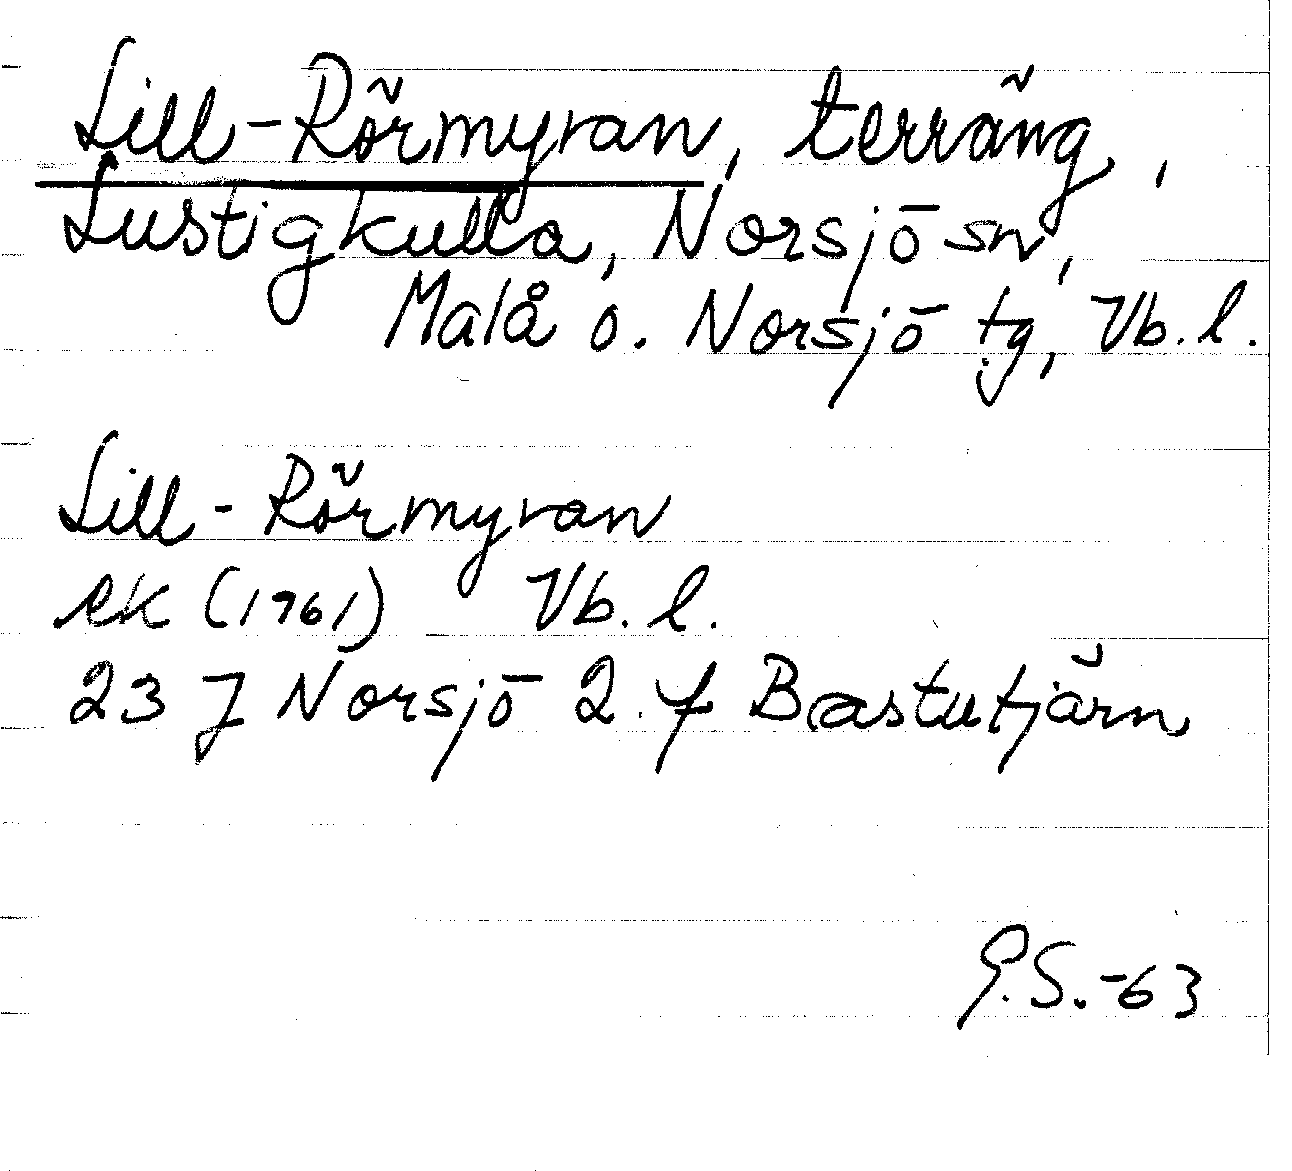 Lill-Rörmyran, terräng,
Lustigkulla, Norsjö sn,
Malå o. Norsjö tg, Vb. l.
Lill-Rörmyran
ek (1961) Vb. l.
23 J Norsjö 2 f Bastutjärn
G.S.-63